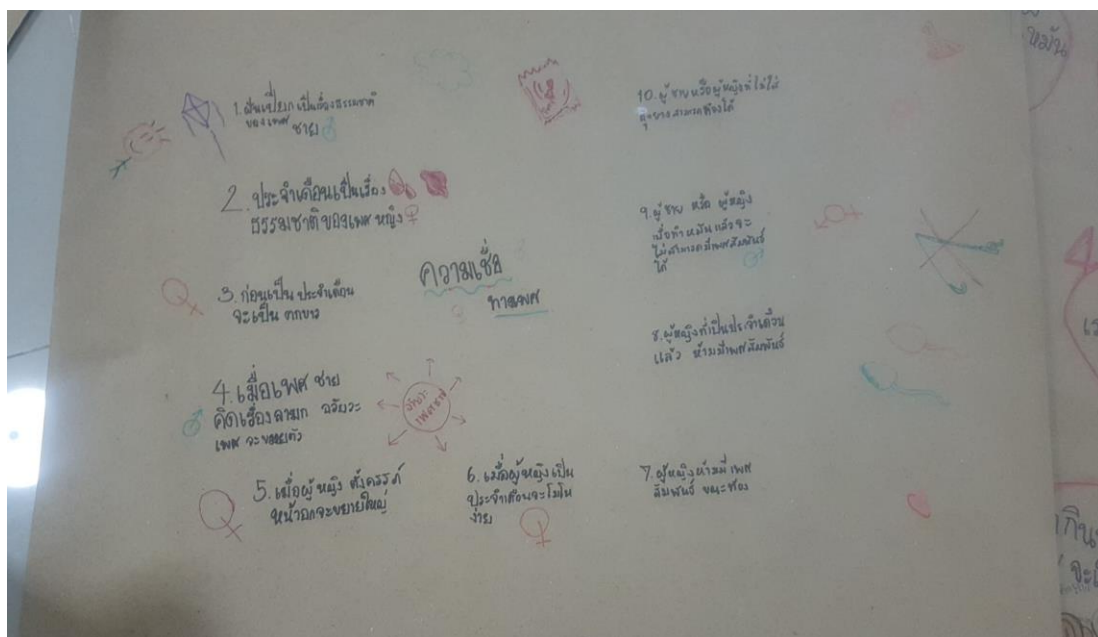 ความเชื่อ
ทางเพศ
1. ฝันเปียกเป็นเรื่องธรรมชาติ
ของเพศ ชาย
2. ประจำเดือนเป็นเรื่อง
ธรรมชาติของเพศ หญิง
3. ก่อนเป็น ประจำเดือน
จะเป็น ตกขาว
4. เมื่อเพศ ชาย
คิดเรื่องลามก อวัยวะ
เพศ จะขยายตัว
อวัยวะ
เพศชาย
5. เมื่อผู้หญิง ตั้งครรภ์
หน้าอกจะขยายใหญ่
6. เมื่อผู้หญิงเป็น
ประจำเดือนจะโมโห
ง่าย
7. ผู้หญิงห้ามมี เพศ
สัมพันธ์ ขณะท้อง
8. ผู้หญิงที่เป็นประจำเดือน
แล้ว ห้ามมีเพศสัมพันธ์
9. ผู้ ชาย หรือ ผู้หญิง
เมื่อทำ หมันแล้วจะ
ไม่สามารถมีเพศสัมพันธ์
ได้
10. ผู้ ชาย หรือผู้หญิงที่ไม่ใส่
ถุงยางสามารถท้องได้